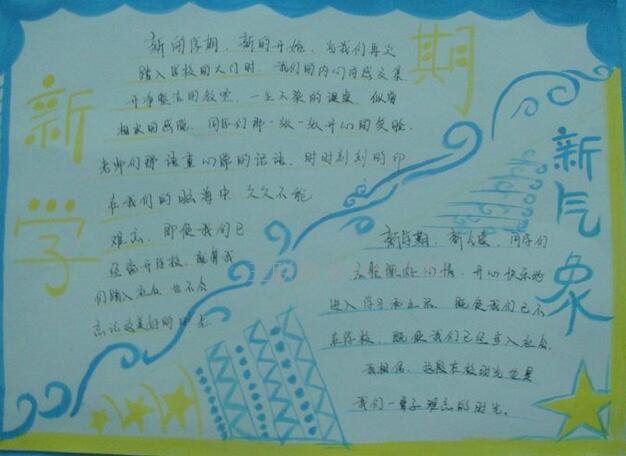 新学期
新的学期，新的开始，当我们再次
踏入学校的大门时，我们的内心百感交集
干净整洁的教室，一尘不染的课桌，似曾
相识的感觉，同学们那一张一张开心的笑脸，
老师们那语重心长的话语，时时刻刻的印
在我们的脑海中，久久不能
难忘，即使我们已
经离开学校，
们踏入社会，也不会
忘记这美好的
新气象
新学期，新气象，同学们
开心快乐的
进入学习和生活，既使我们已不
在学校，既使我们已经步入社会，
我相信，这段在校时光也是
我们一辈子难忘的时光。